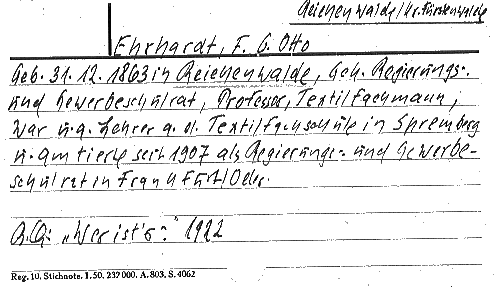 Reichenwalde/Kr. Fürstenwalde
Ehrhardt, F. G. Otto
Geb. 31. 12. 1863 in Reichenwalde, Geh. Regierungs-
und Gewerbeschulrat, Professor, Textilfachmann,
war u.a. Lehrer a. d. Textilfachschule in Spremberg
u. amtierte seit 1907 als Regierungs- und Gewerbe-
schulrat in Frankfurt/Oder.
"Wer ist's?" 1922
Reg. 10. Stichnote. 1.50. 237000. A. 803. S. 4062